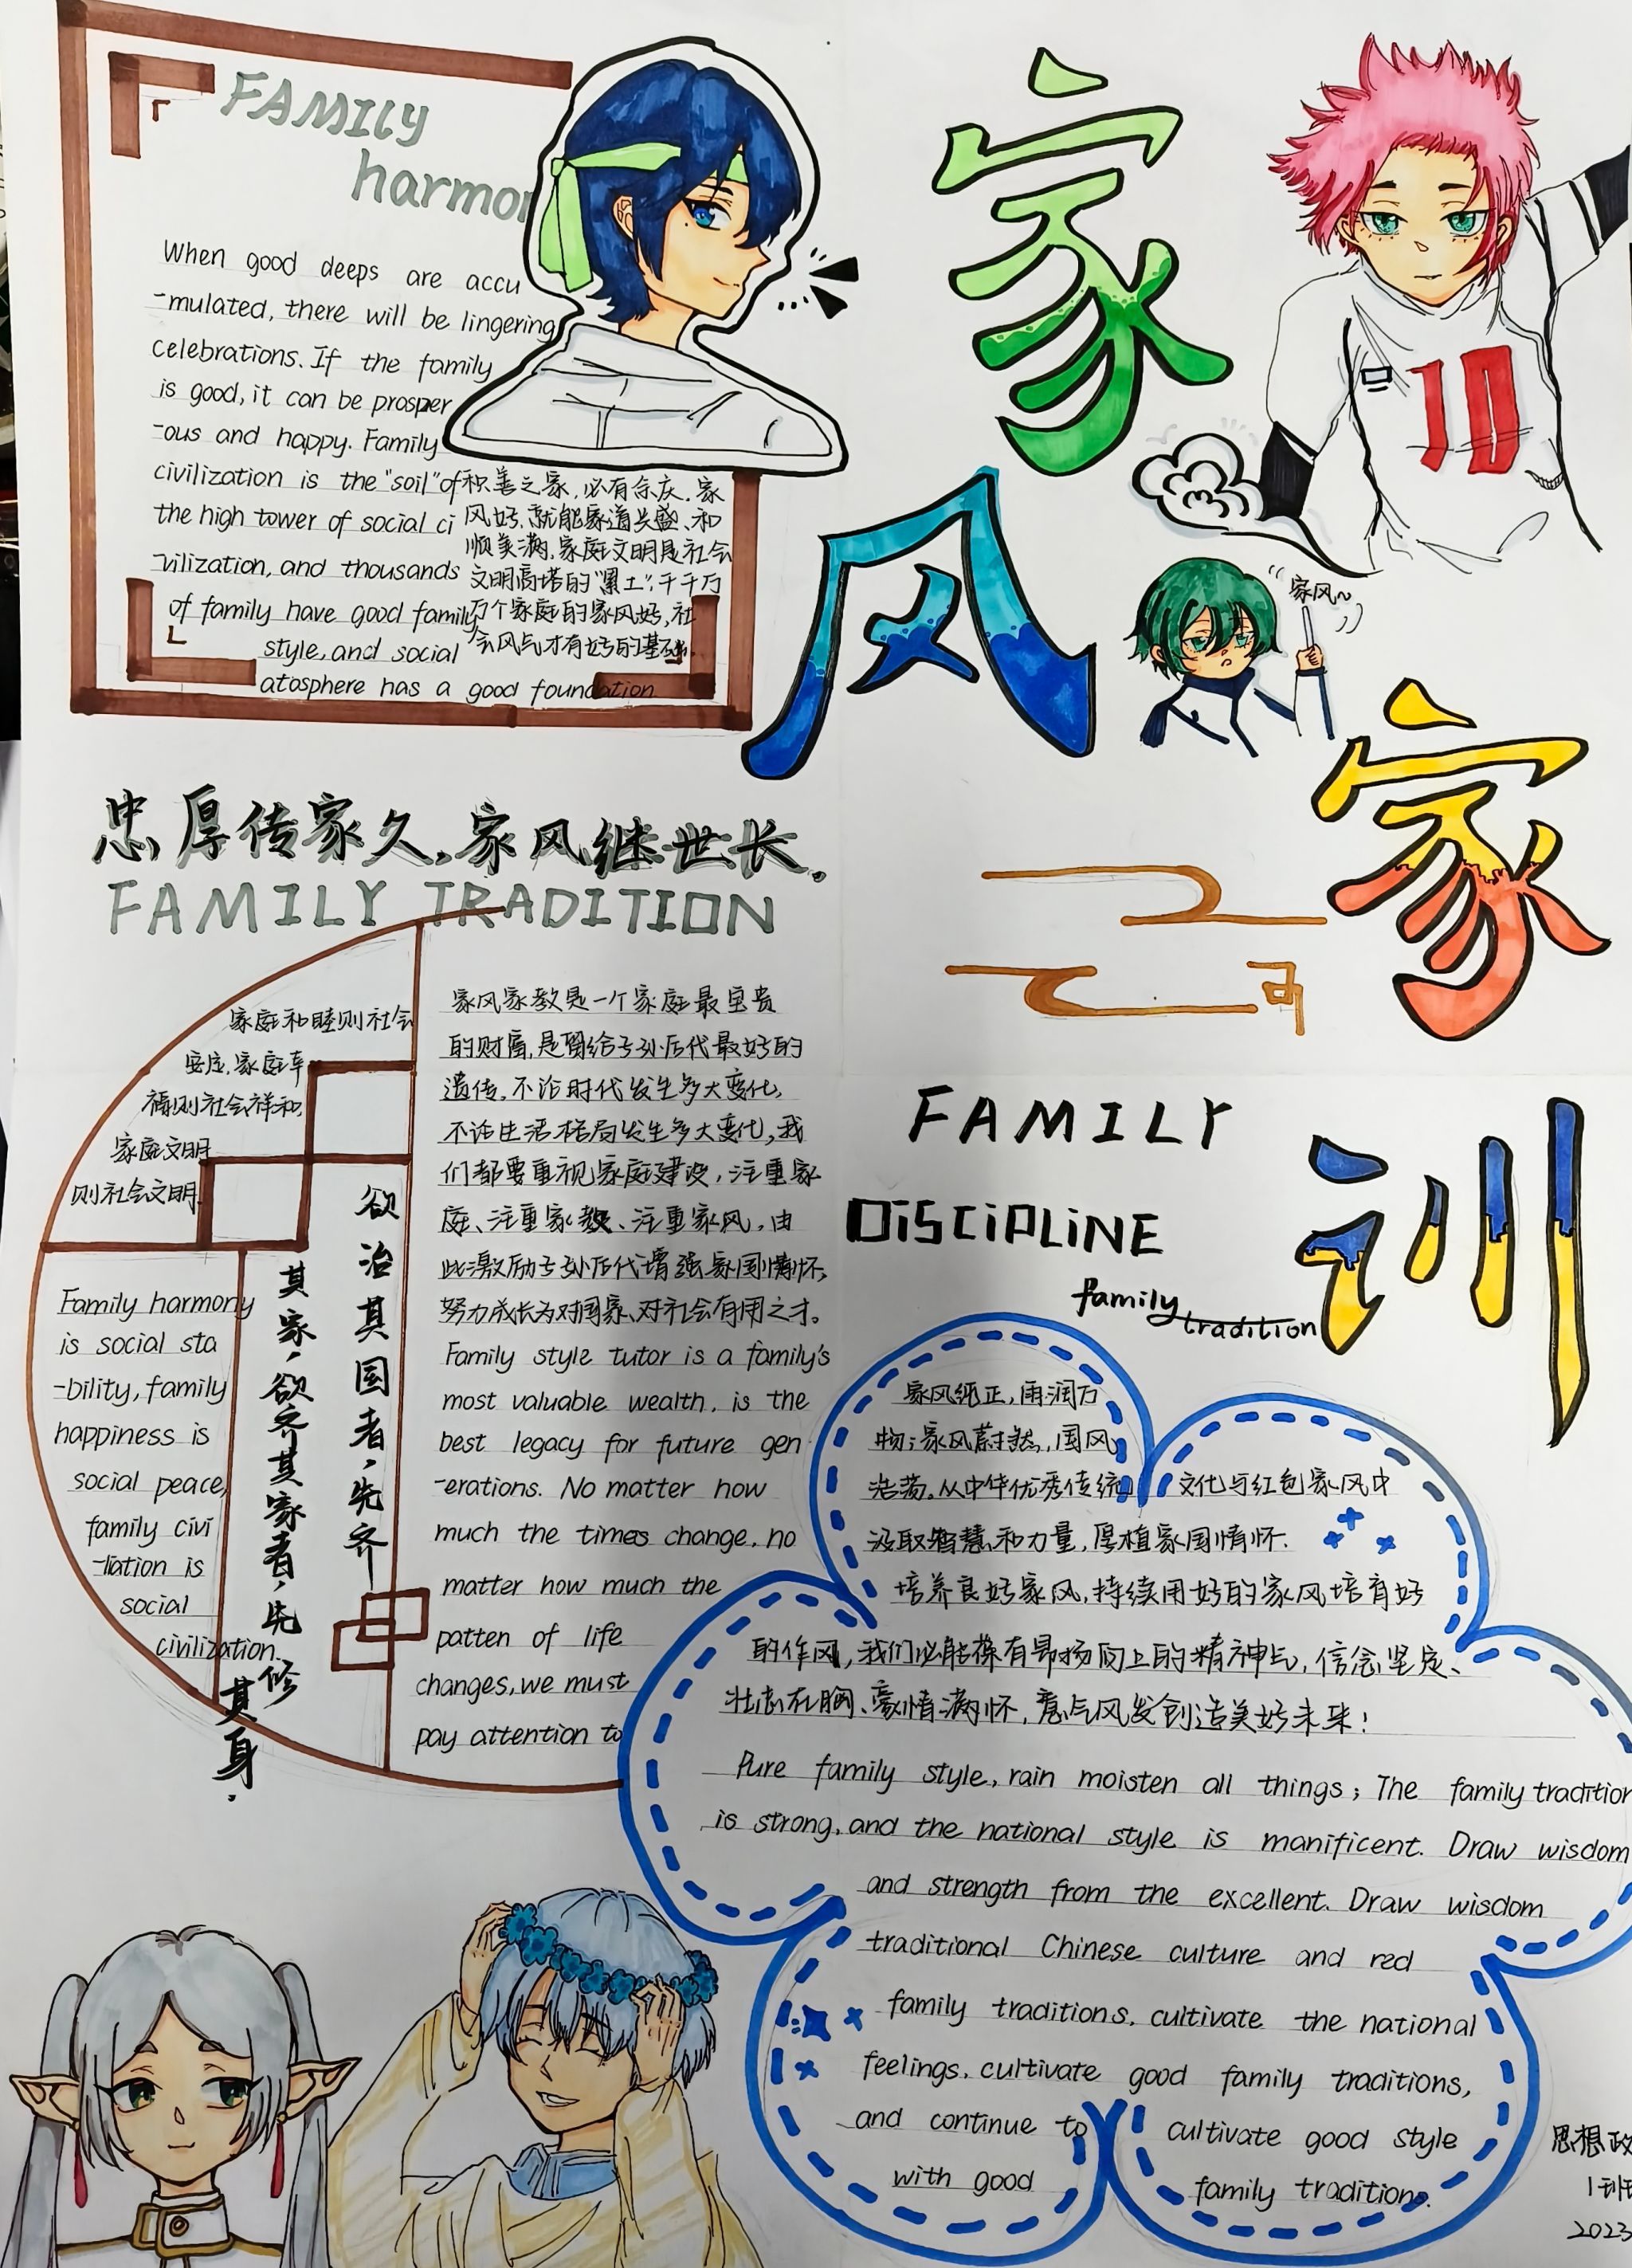 FAMILY
harmo
When good deeps are accu
-mulated, there will be lingering
celebrations. If the family
is good, it can be prosper
-ous and happy. Family
civilization is the "soil" of
the high tower of social ci
-vilization, and thousands
of family have good family
style, and social
atosphere has a good foundation
积善之家,必有余庆.家
风好,就能家道兴盛、和
顺美满,家庭文明是社会
文明高塔的"黑土";千千万
万个家庭的家风好,社
会风气才有好的基础.
家
风
家风~
家
训
忠厚传家久,家风继世长。
FAMILY TRADITION
家庭和睦则社会
安定,家庭幸
福则社会祥和,
家庭文明
则社会文明.
Family harmony
is social sta
-bility, family
happiness is
social peace,
family civi
-liation is
social
civilization.
欲治其国者,先齐
其家,欲齐其家者,先修
其身.
家风家教是一个家庭最宝贵
的财富,是留给子孙后代最好的
遗传.不论时代发生多大变化,
不论生活格局发生多大变化,我
们都要重视家庭建设,注重家
庭、注重家教、注重家风,由
此激励子孙后代增强家国情怀,
努力成长为对国家、对社会有用之才。
Family style tutor is a family's
most valuable wealth, is the
best legacy for future gen
-erations. No matter how
much the times change, no
matter how much the
patten of life
changes, we must
pay attention to
FAMILY
DISCIPLINE
family
tradition
家风纯正,雨润万
物;家风蔚然,国风
浩荡。从中华优秀传统文化与红色家风中
汲取智慧和力量,厚植家国情怀.
培养良好家风,持续用好的家风培育好
的作风,我们必能葆有昂扬向上的精神气,信念坚定、
壮志在胸、豪情满怀,意气风发创造美好未来!
Pure family style, rain moisten all things; The family tradition
is strong, and the national style is manificent. Draw wisdom
and strength from the excellent. Draw wisdom
traditional Chinese culture and red
family traditions, cultivate the national
feelings, cultivate good family traditions,
and continue to cultivate good style
with good family traditions.
思想政
1班
2023
10